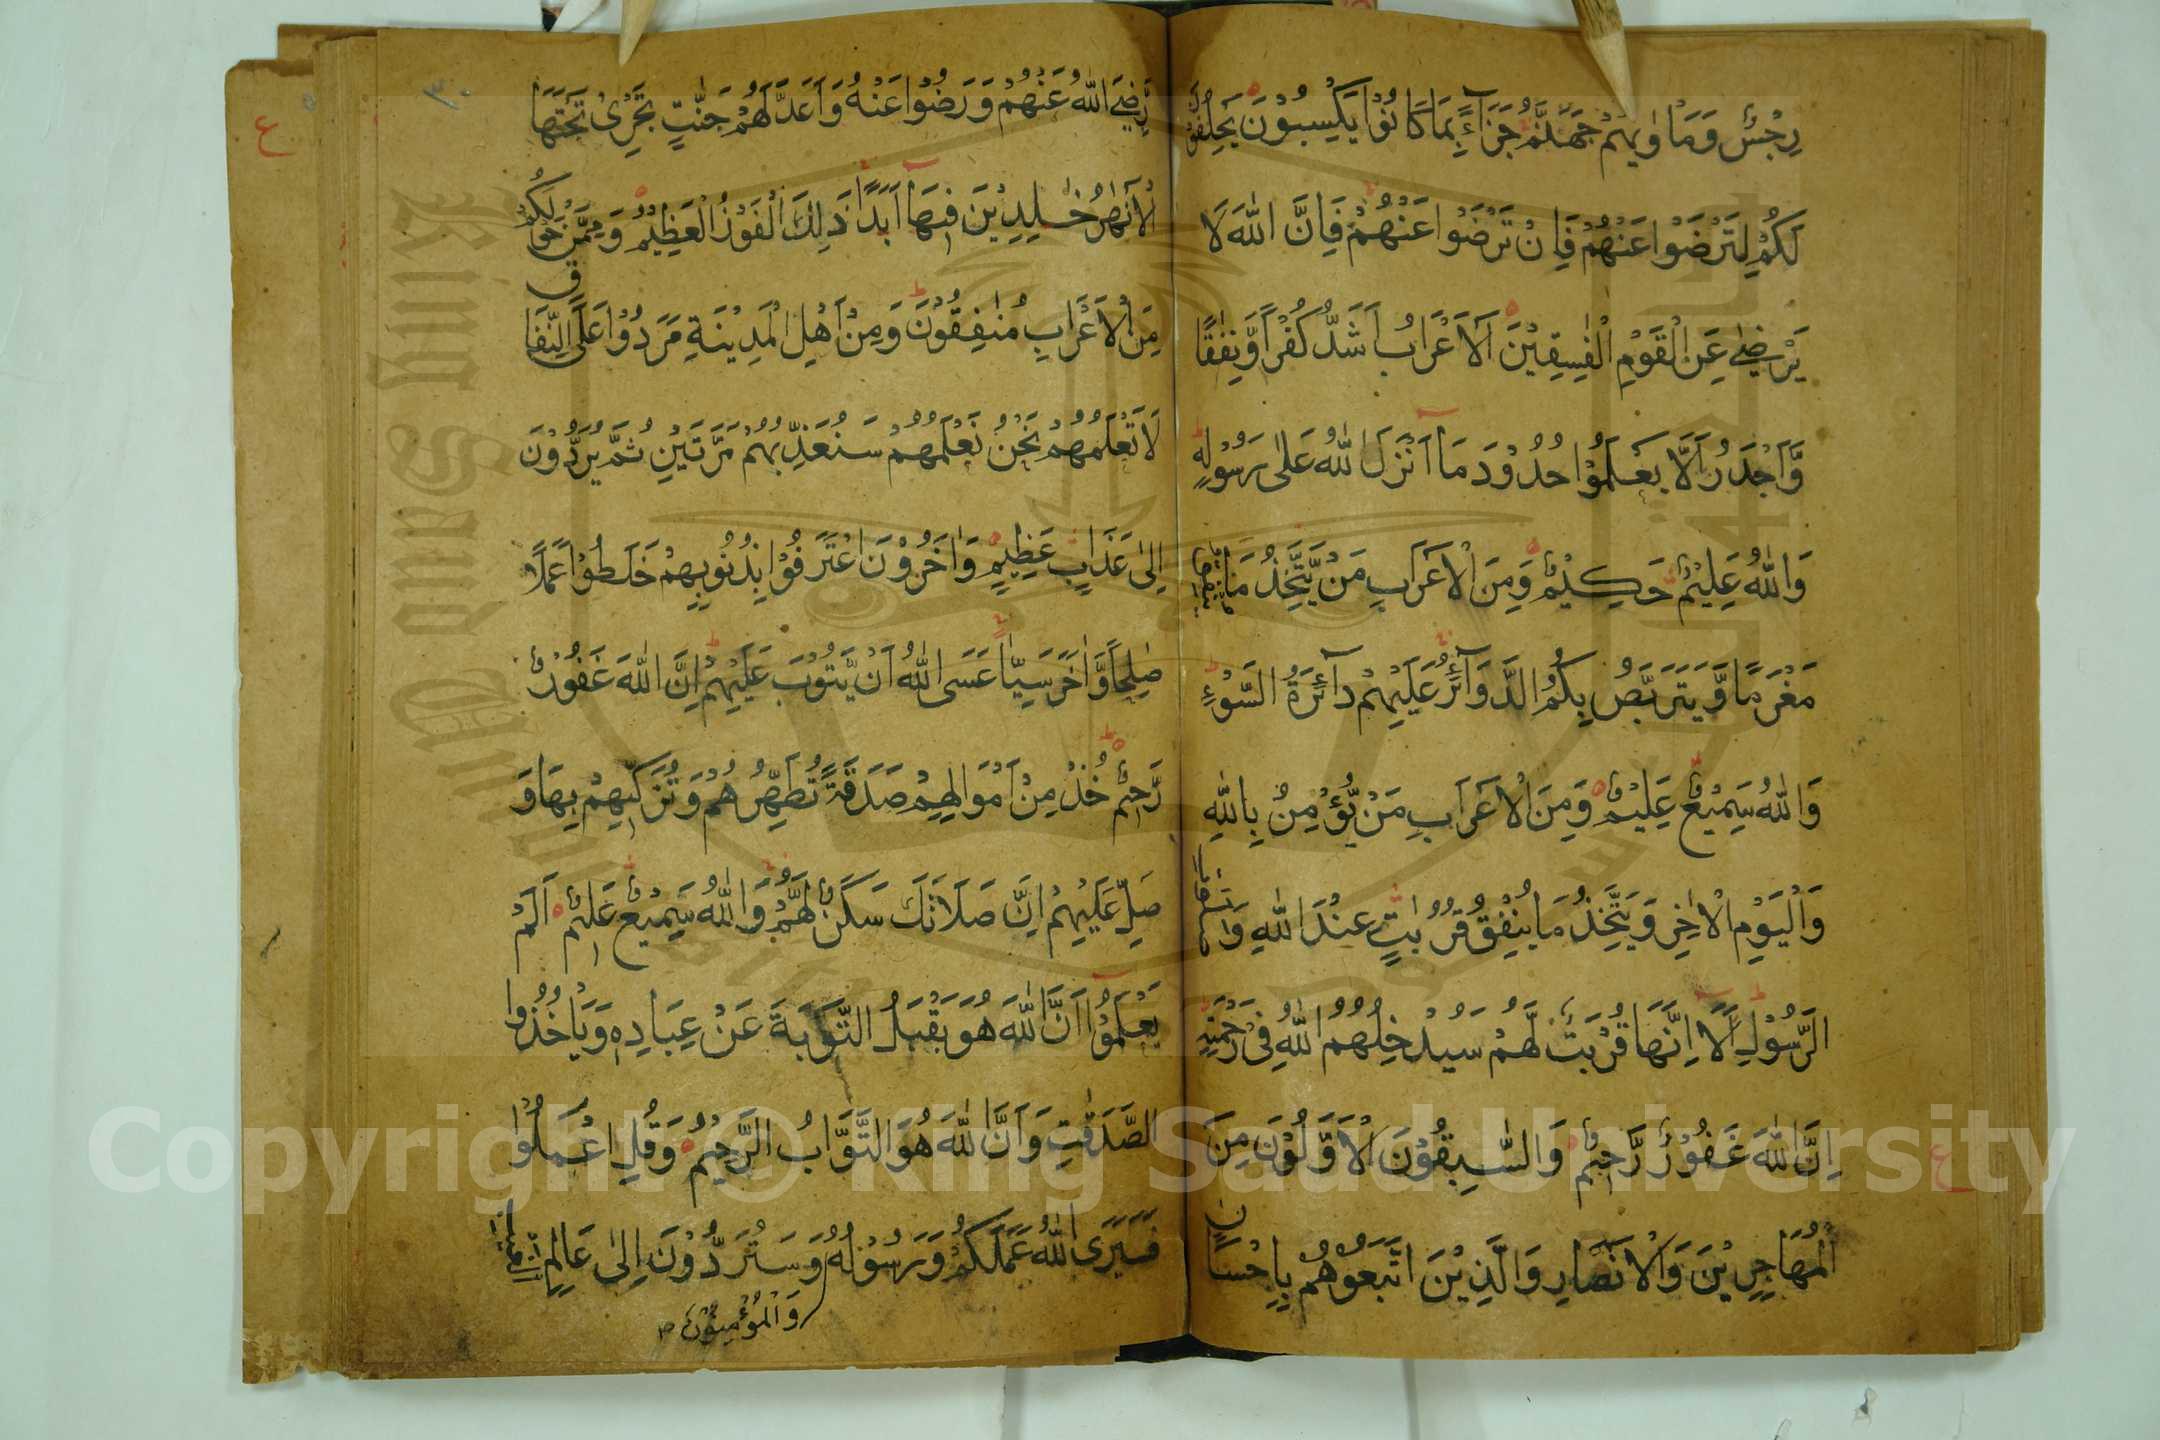 رِجْسٌ وَمَاْوٰىهُمْ جَهَنَّمُ جَزَآءً بِمَا كَانُوْا يَكْسِبُوْنَ يَحْلِفُوْنَ
لَكُمْ لِتَرْضَوْا عَنْهُمْ فَاِنْ تَرْضَوْا عَنْهُمْ فَاِنَّ اللّٰهَ لَا
يَرْضٰى عَنِ الْقَوْمِ الْفٰسِقِيْنَ اَلْاَعْرَابُ اَشَدُّ كُفْرًا وَّنِفَاقًا
وَّاَجْدَرُ اَلَّا يَعْلَمُوْا حُدُوْدَ مَا اَنْزَلَ اللّٰهُ عَلٰى رَسُوْلِهٖ
وَاللّٰهُ عَلِيْمٌ حَكِيْمٌ وَمِنَ الْاَعْرَابِ مَنْ يَّتَّخِذُ مَا يُنْفِقُ
مَغْرَمًا وَّيَتَرَبَّصُ بِكُمُ الدَّوَآئِرَ عَلَيْهِمْ دَآئِرَةُ السَّوْءِ
وَاللّٰهُ سَمِيْعٌ عَلِيْمٌ وَمِنَ الْاَعْرَابِ مَنْ يُّؤْمِنُ بِاللّٰهِ
وَالْيَوْمِ الْاٰخِرِ وَيَتَّخِذُ مَا يُنْفِقُ قُرُبٰتٍ عِنْدَ اللّٰهِ وَصَلَوٰتِ
الرَّسُوْلِ اَلَا اِنَّهَا قُرْبَةٌ لَّهُمْ سَيُدْخِلُهُمُ اللّٰهُ فِىْ رَحْمَتِهٖ
اِنَّ اللّٰهَ غَفُوْرٌ رَّحِيْمٌ وَالسّٰبِقُوْنَ الْاَوَّلُوْنَ مِنَ
ع
الْمُهَاجِرِيْنَ وَالْاَنْصَارِ وَالَّذِيْنَ اتَّبَعُوْهُمْ بِاِحْسَانٍ
رَّضِىَ اللّٰهُ عَنْهُمْ وَرَضُوْا عَنْهُ وَاَعَدَّ لَهُمْ جَنّٰتٍ تَجْرِىْ تَحْتَهَا
الْاَنْهٰرُ خٰلِدِيْنَ فِيْهَا اَبَدًا ذٰلِكَ الْفَوْزُ الْعَظِيْمُ وَمِمَّنْ حَوْلَكُمْ
مِّنَ الْاَعْرَابِ مُنٰفِقُوْنَ وَمِنْ اَهْلِ الْمَدِيْنَةِ مَرَدُوْا عَلَى النِّفَاقِ
لَا تَعْلَمُهُمْ نَحْنُ نَعْلَمُهُمْ سَنُعَذِّبُهُمْ مَّرَّتَيْنِ ثُمَّ يُرَدُّوْنَ
اِلٰى عَذَابٍ عَظِيْمٍ وَاٰخَرُوْنَ اعْتَرَفُوْا بِذُنُوْبِهِمْ خَلَطُوْا عَمَلًا
صٰلِحًا وَّاٰخَرَ سَيِّئًا عَسَى اللّٰهُ اَنْ يَّتُوْبَ عَلَيْهِمْ اِنَّ اللّٰهَ غَفُوْرٌ
رَّحِيْمٌ خُذْ مِنْ اَمْوَالِهِمْ صَدَقَةً تُطَهِّرُهُمْ وَتُزَكِّيْهِمْ بِهَا وَ
صَلِّ عَلَيْهِمْ اِنَّ صَلَاتَكَ سَكَنٌ لَّهُمْ وَاللّٰهُ سَمِيْعٌ عَلِيْمٌ اَلَمْ
يَعْلَمُوْا اَنَّ اللّٰهَ هُوَ يَقْبَلُ التَّوْبَةَ عَنْ عِبَادِهٖ وَيَاْخُذُ
الصَّدَقٰتِ وَاَنَّ اللّٰهَ هُوَ التَّوَّابُ الرَّحِيْمُ وَقُلِ اعْمَلُوْا
فَسَيَرَى اللّٰهُ عَمَلَكُمْ وَرَسُوْلُهٗ وَسَتُرَدُّوْنَ اِلٰى عَالِمِ الْغَيْبِ
وَالْمُؤْمِنُوْنَ
ع
Copyright © King Saud University